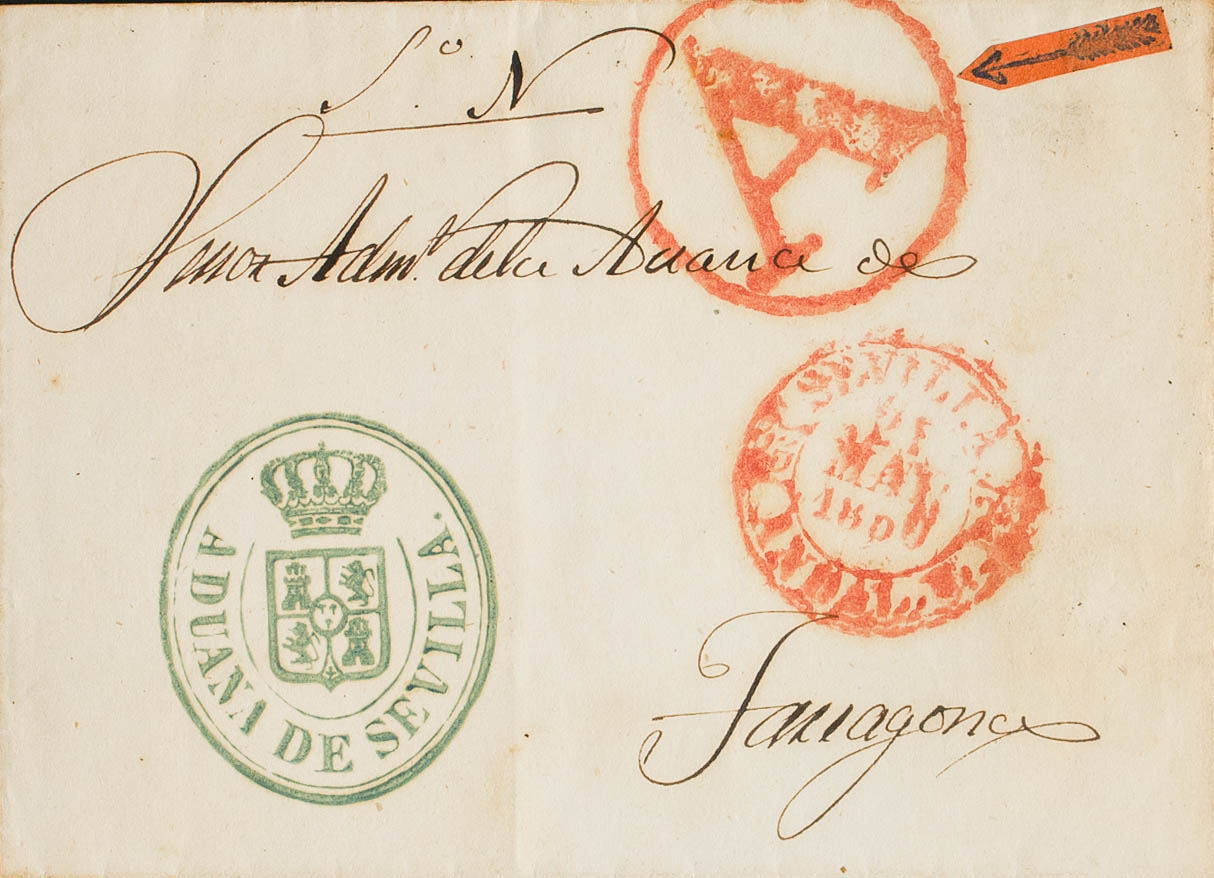 S.º N
A
Señor Adm.ʳ de la Aduana de
SEVILLA
MAY
ADUANA DE SEVILLA.
Tarragona